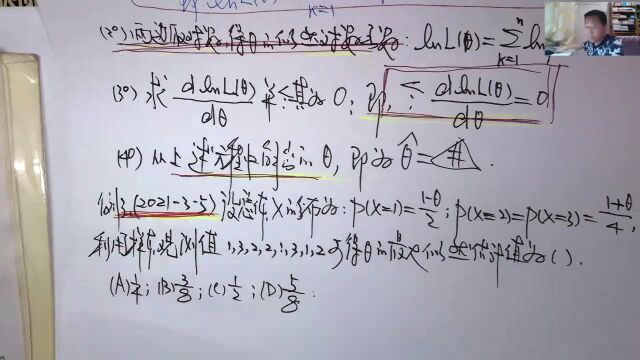 (2°) 两边取对数, 得θ的似然对数函数: ln L(θ) = ∑_{k=1}^{n} ln
(3°) 求 d ln L(θ)/dθ 并令其为 0, 即, 令 d ln L(θ)/dθ = 0
(4°) 从上述方程中解出 θ, 即为 θ̂ = #.
例3 (2021-3-5) 设总体X的分布为: P(X=1) = (1-θ)/2; P(X=2) = P(X=3) = (1+θ)/4,
利用样本观测值 1,3,2,2,1,3,1,2 可得θ的最大似然估计值为( ).
(A) 1/4; (B) 3/8; (C) 1/2; (D) 5/8.